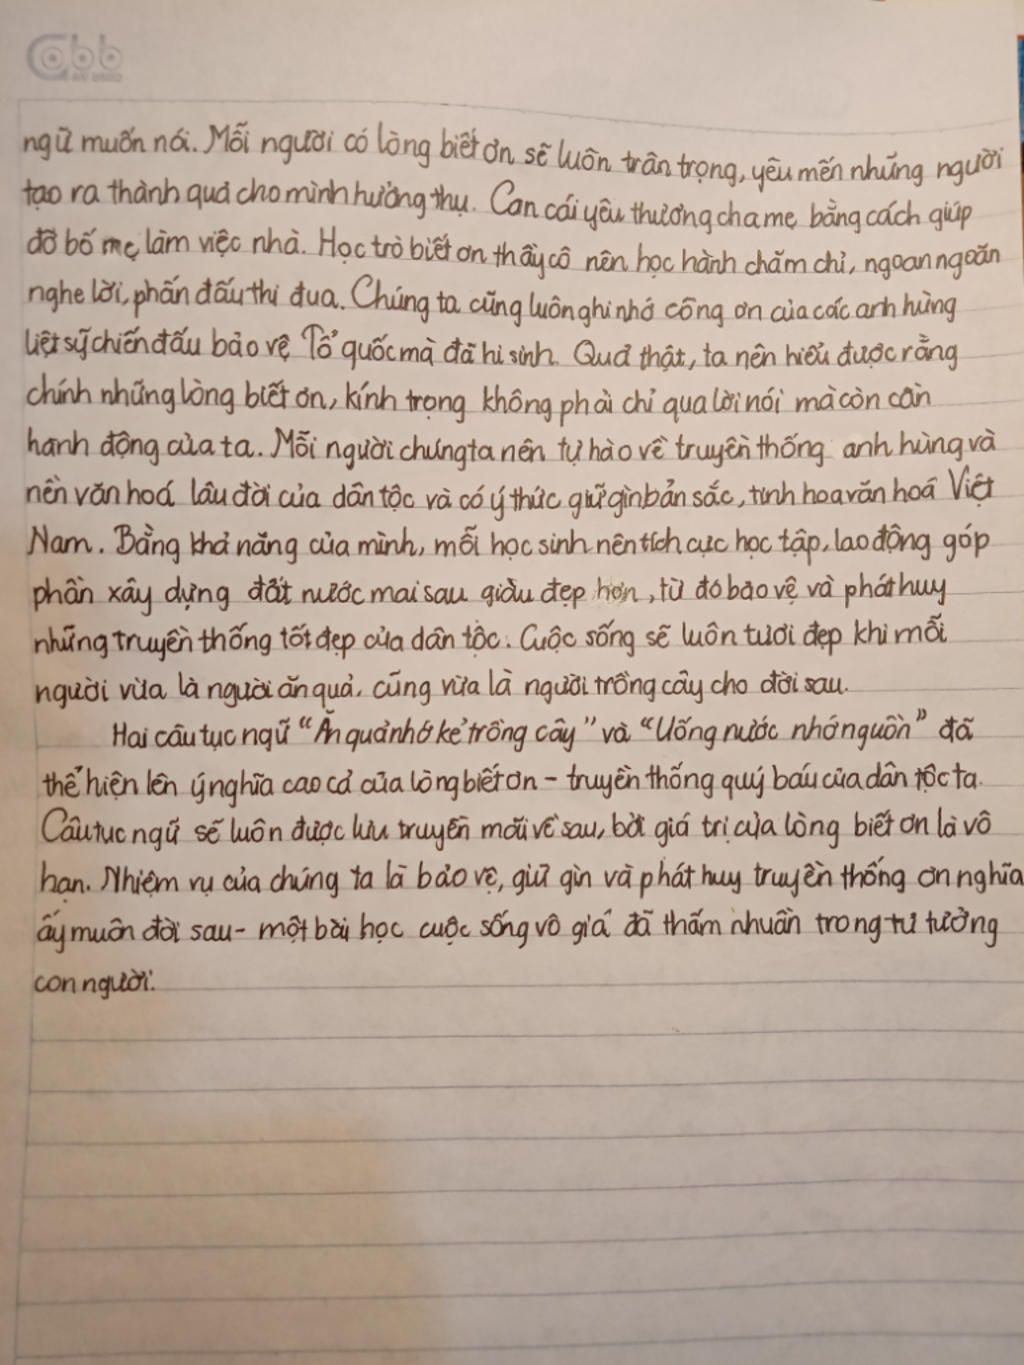 ngữ muốn nói. Mỗi người có lòng biết ơn sẽ luôn trân trọng, yêu mến những người
tạo ra thành quả cho mình hưởng thụ. Con cái yêu thương cha mẹ bằng cách giúp
đỡ bố mẹ làm việc nhà. Học trò biết ơn thầy cô nên học hành chăm chỉ, ngoan ngoãn
nghe lời, phấn đấu thi đua. Chúng ta cũng luôn ghi nhớ công ơn của các anh hùng
liệt sỹ chiến đấu bảo vệ Tổ quốc mà đã hi sinh. Quả thật, ta nên hiểu được rằng
chính những lòng biết ơn, kính trọng không phải chỉ qua lời nói mà còn cần
hành động của ta. Mỗi người chúng ta nên tự hào về truyền thống anh hùng và
nền văn hoá lâu đời của dân tộc và có ý thức giữ gìn bản sắc, tinh hoa văn hoá Việt
Nam. Bằng khả năng của mình, mỗi học sinh nên tích cực học tập, lao động góp
phần xây dựng đất nước mai sau giàu đẹp hơn, từ đó bảo vệ và phát huy
những truyền thống tốt đẹp của dân tộc. Cuộc sống sẽ luôn tươi đẹp khi mỗi
người vừa là người ăn quả, cũng vừa là người trồng cây cho đời sau.
Hai câu tục ngữ "Ăn quả nhớ kẻ trồng cây" và "Uống nước nhớ nguồn" đã
thể hiện lên ý nghĩa cao cả của lòng biết ơn - truyền thống quý báu của dân tộc ta.
Câu tục ngữ sẽ luôn được lưu truyền mãi về sau, bởi giá trị của lòng biết ơn là vô
hạn. Nhiệm vụ của chúng ta là bảo vệ, giữ gìn và phát huy truyền thống ơn nghĩa
ấy muôn đời sau - một bài học cuộc sống vô giá đã thấm nhuần trong tư tưởng
con người.